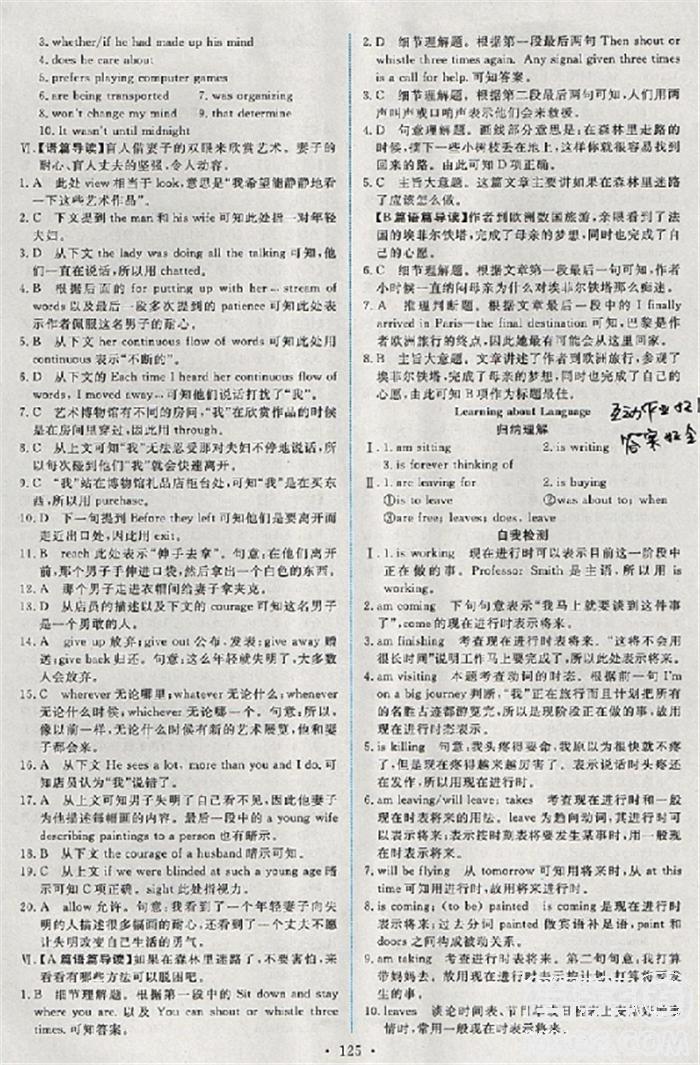 3. whether/if he had made up his mind
4. does he care about
5. prefers playing computer games
6. are being transported 7. was organizing
8. won't change my mind 9. that determine
10. It wasn't until midnight
Ⅵ.【语篇导读】盲人借妻子的双眼来欣赏艺术。妻子的
耐心、盲人丈夫的坚强,令人动容。
1. A 此处 view 相当于 look,意思是“我希望能静静地看
一下这些艺术作品”。
2. C 下文提到 the man and his wife 可知此处指一对年轻
夫妇。
3. D 从下文 the lady was doing all the talking 可知,他
们一直在说话,所以用 chatted。
4. B 根据后面的 for putting up with her… stream of
words 以及最后一段多次提到的 patience 可知此处表
示作者佩服这名男子的耐心。
5. B 从下文 her continuous flow of words 可知此处用
continuous 表示“不断的”。
6. D 从下文的 Each time I heard her continuous flow of
words, I moved away… 可知他们说话打扰了“我”。
7. C 艺术博物馆有不同的房间,“我”在欣赏作品的时候
是在房间里穿过,因此用 through。
8. C 从上文可知“我”无法忍受那对夫妇不停地说话,所
以每次碰到他们“我”就会快速离开。
9. C “我”站在博物馆礼品店柜台处,可知“我”是在买东
西,所以用 purchase。
10. D 下一句提到 Before they left 可知他们是要离开而
走近出口处,因此用 exit。
11. B reach 此处表示“伸手去拿”。句意:在他们离开
前,那个男子手伸进口袋,然后拿出一个白色的东西。
12. A 那个男子走进衣帽间给妻子拿夹克。
13. D 从店员的描述以及下文的 courage 可知这名男子
是一个勇敢的人。
14. A give up 放弃;give out 公布,发表;give away 赠
送;give back 归还。句意:这么年轻就失明了,大多数
人会放弃。
15. C wherever 无论哪里;whatever 无论什么;whenever
无论什么时候;whichever 无论哪一个。句意:所以,
像以前一样,无论什么时候有新的艺术展览,他和妻
子都会来。
16. D 从下文 He sees a lot, more than you and I do. 可
知店员认为“我”说错了。
17. A 从上文可知男子失明了自己看不见,因此他妻子
为他描述每幅画的内容。最后一段中的 a young wife
describing paintings to a person 也有暗示。
18. B 从下文 the courage of a husband 暗示可知。
19. C 从上文 if we were blinded at such a young age 暗示
可知 C 项正确。sight 此处指视力。
20. A allow 允许。句意:我看到了一个年轻妻子向失
明的人描述很多事情的耐心,还看到了一个丈夫不愿
让失明改变自己生活的勇气。
Ⅵ.【A 篇语篇导读】如果在森林里迷路了,不要害怕,来
看看有哪些方法可以脱困吧。
1. B 细节理解题。根据第一段中的 Sit down and stay
where you are. 以及 You can shout or whistle three
times. 可知答案。
2. D 细节理解题。根据第一段最后两句 Then shout or
whistle three times again. Any signal given three times
is a call for help. 可知答案。
3. C 细节理解题。根据第二段最后两句可知,人们用两
声叫声或口哨声表示他们会来救援。
4. D 句意理解题。画线部分意思是:在森林里走路的
时候,摘下一些小树枝丢在地上,这样你就可以找到
回来的路。由此可知 D 项正确。
5. C 主旨大意题。这篇文章主要讲如果在森林里迷路
了应该怎么做。
【B 篇语篇导读】作者到欧洲数国旅游,亲眼看到了法
国的埃菲尔铁塔,完成了母亲的梦想,同时完成了自
己的心愿。
6. C 细节理解题。根据文章第一段最后一句可知,作者
小时候一直纳闷母亲为什么对埃菲尔铁塔那么痴迷。
7. A 推理判断题。根据文章最后一段中的 I finally
arrived in Paris—the final destination 可知,巴黎是作
者欧洲旅行的终点,因此她最有可能待在法国。
8. B 主旨大意题。文章讲述了作者到欧洲旅行,参观了
埃菲尔铁塔,完成了母亲的梦想,同时完成了自己的心
愿。由此可知 B 项作为标题最佳。
Learning about Language
归纳理解
Ⅰ. 1. am sitting 2. is writing
3. is forever thinking of
Ⅱ. 1. are leaving for 2. is buying
①is to leave ②was about to; when
③are free; leaves; does, leave
自我检测
Ⅰ. 1. is working 现在进行时可以表示目前这一阶段中
正在做的事。Professor Smith 是主语,所以用 is
working。
2. am coming 下句句意表示“我马上就要谈到这件事
了”,come 的现在进行时表示将来。
3. am finishing 考查现在进行时表将来。“这将不会用
很长时间”说明工作马上要完成,故用进行时表将来。
4. am visiting 本题考查动词的时态。根据前一句 I'm
on a big journey 判断,“我”正在旅行而且计划把所有
的名胜古迹都游览完,所以是现阶段正在做的事,故用
现在进行时态表示。
5. is killing 句意:我头疼得要命,我原以为很快就不疼
了,但是疼得越来越厉害了。表示说话时头疼还
在发作,所以用现在进行时。
6. am leaving/will leave; takes 考查现在进行时和一般
现在时表将来的用法。leave 为趋向动词,其进行时可
以表示将来;表示按时刻表将要发生某事时,用一般现
在时表示将来。
7. will be flying 从 tomorrow 可知用将来时,从 at this
time 可知用进行时,因此用将来进行时。
8. is coming; (to be) painted come 的现在进行时表
示将来;过去分词 painted 做宾语补足语,paint 和
doors 之间构成被动关系。
9. am taking 考查进行时表将来。第二句句意:我打算
带妈妈去。现在进行时表示按计划、打算将要发
生的事。
10. leaves 谈论时间表、节目单
情时,常用一般现在时表示将来。
125
答案